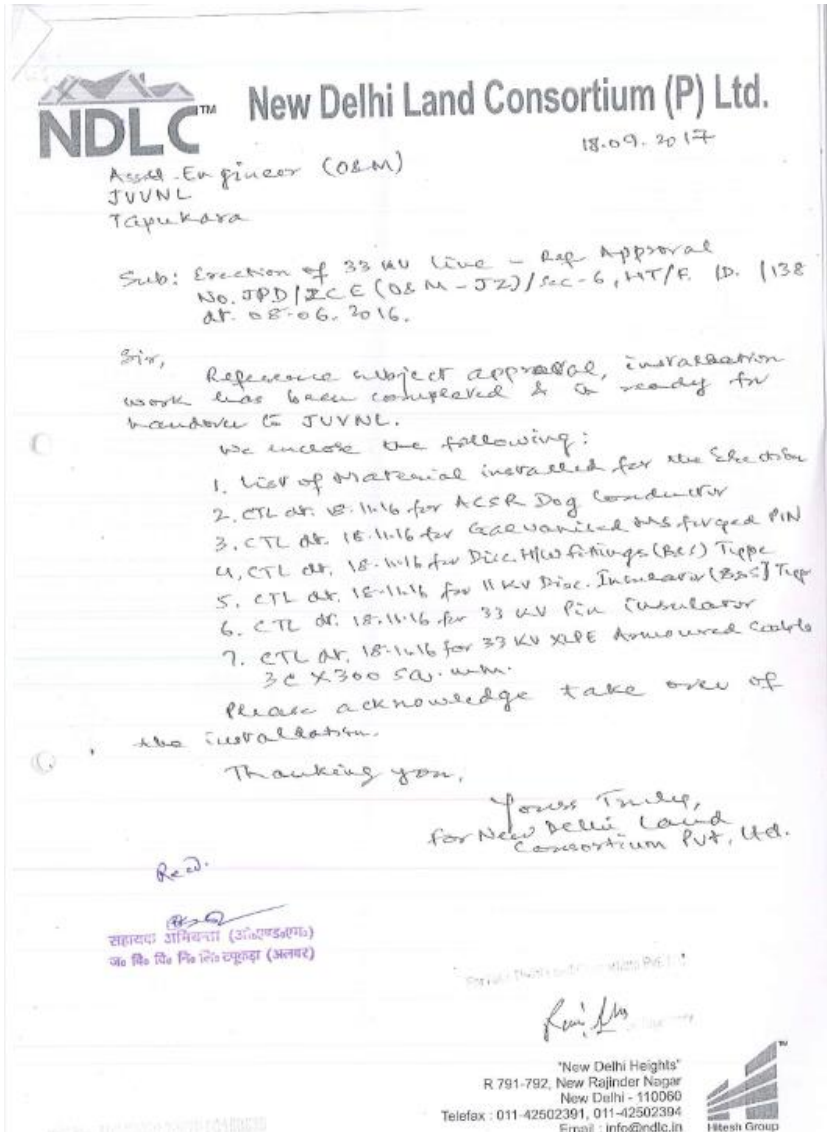 NDLC™
New Delhi Land Consortium (P) Ltd.
18.09.2017
Asstt. Engineer (O&M)
JVVNL
Tapukara
Sub: Erection of 33 KV line - Ref Approval
No. JPD/ZCE (O&M-JZ)/Sec-6, HT/F. ID. /138
dt. 08.06.2016.
Sir,
Reference subject approval, installation
work has been completed & is ready for
handover to JUVNL.
We enclose the following:
1. List of Material installed for the Erection
2. CTL dt. 18.11.16 for ACSR Dog Conductor
3. CTL dt. 18.11.16 for Galvanised MS forged PIN
4. CTL dt. 18.11.16 for Disc. H/W fittings (B&S) Type
5. CTL dt. 18.11.16 for 11 KV Disc. Insulator (B&S) Type
6. CTL dt. 18.11.16 for 33 KV Pin insulator
7. CTL dt. 18.11.16 for 33 KV XLPE Armoured Cable
3C X 300 SQ. mm.
Please acknowledge take over of
the installation.
Thanking you,
Yours Truly,
for New Delhi Land
Consortium Pvt. Ltd.
Recd.
सहायक अभियन्ता (ओ०एण्ड०एम०)
ज० वि० वि० नि० लि० टपूकड़ा (अलवर)
"New Delhi Heights"
R 791-792, New Rajinder Nagar
New Delhi - 110060
Telefax : 011-42502391, 011-42502394
Email : info@ndlc.in
Hitesh Group